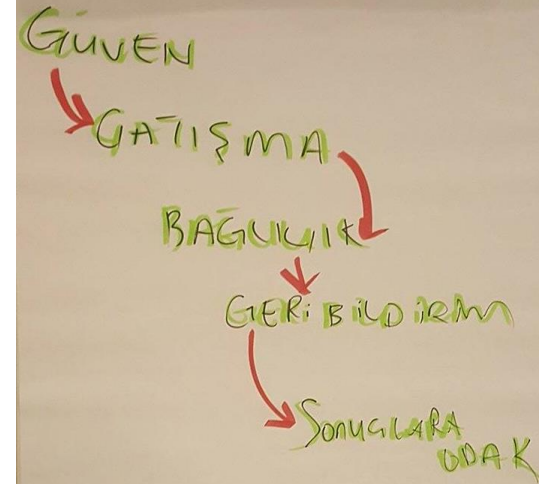 GÜVEN
ÇATIŞMA
BAĞLILIK
GERİ BİLDİRİM
SONUÇLARA
ODAK